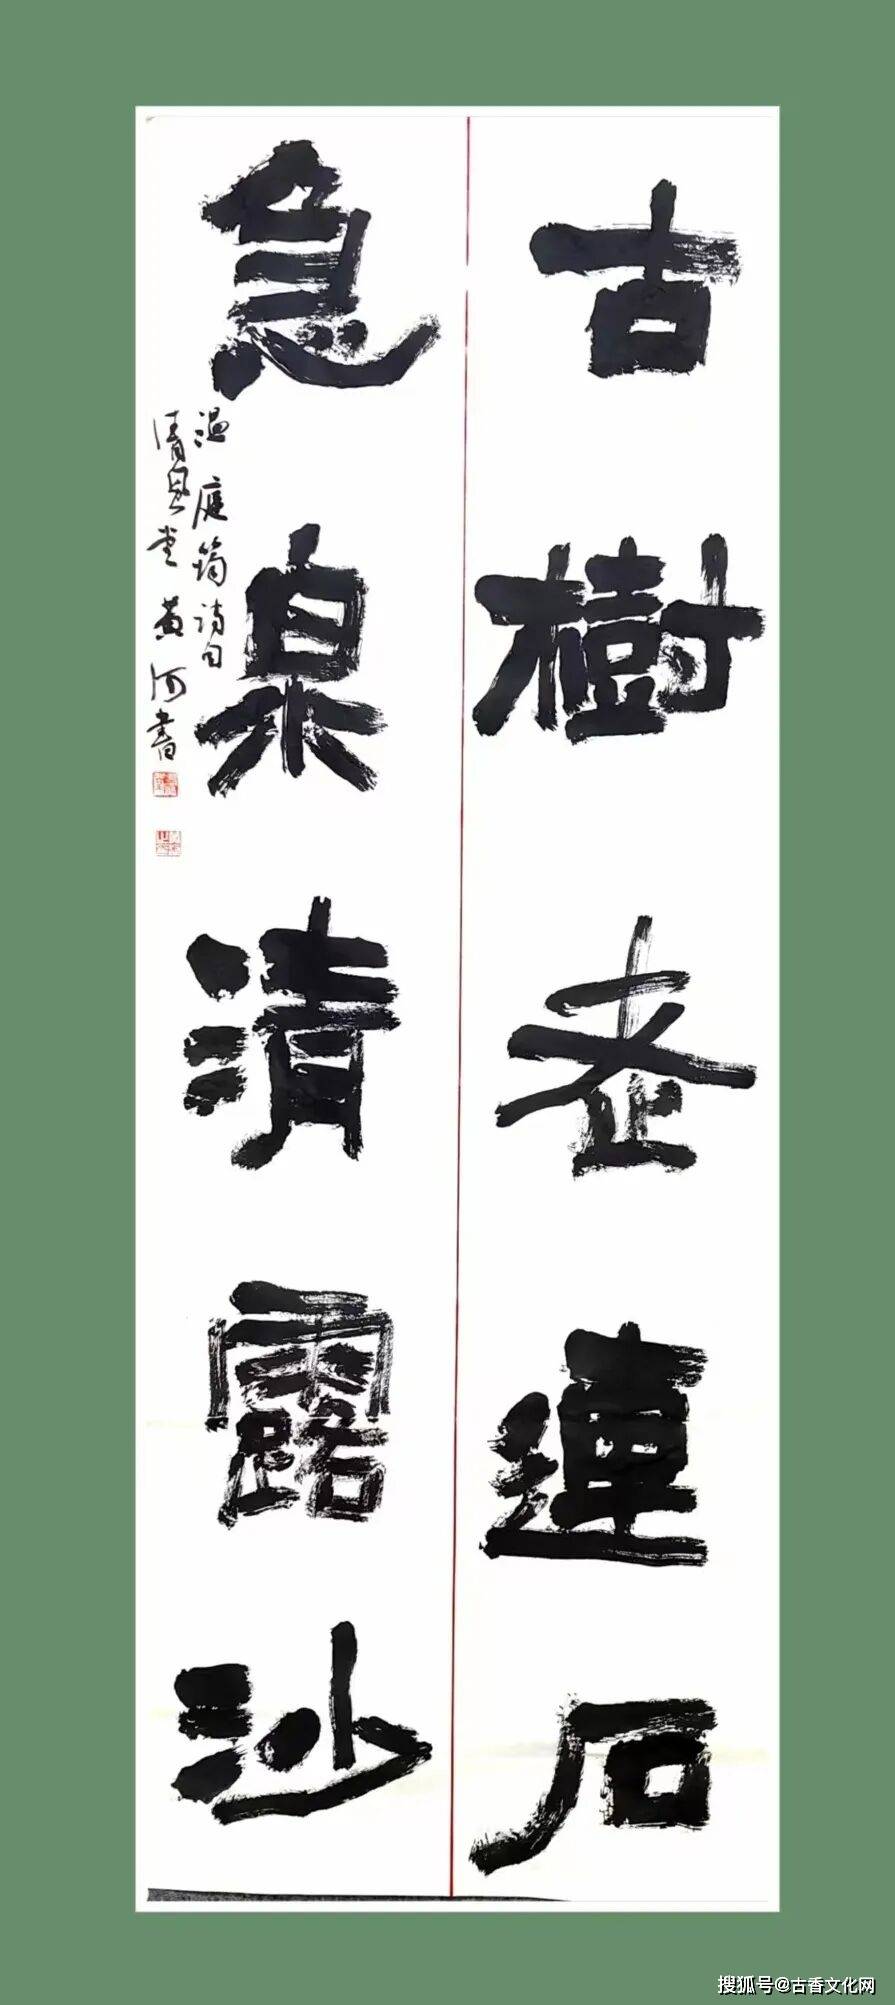 古樹老連石
急泉清露沙
温庭筠诗句
清風堂黄河書
搜狐号@古香文化网